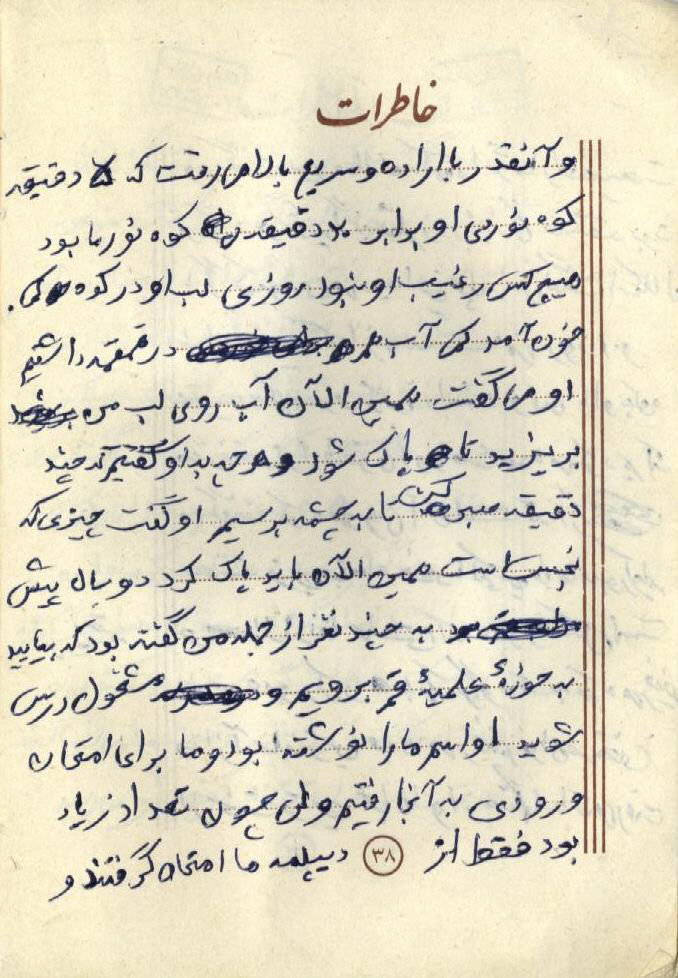 خاطرات
و آنقدر با اراده و سریع بالا می رفت که ۵ دقیقه
کوه نوردی او برابر ۲۰ دقیقه کوه نور ما بود
هیچ کس رغیب او نبود روزی لب او در کوه کمی
خون آمد کمی آب در قمقمه داشتیم
او می گفت همین الآن آب روی لب من
بریزید تا پاک شود و هر چه به او گفتیم که چند
دقیقه صبر کن تا به چشمه برسیم او گفت چیزی که
نجس است همین الآن باید پاک کرد دو سال پیش
به چند نفر از جمله من گفته بود که بیایید
به حوزهٔ علمیهٔ قم برویم و مشغول درس
شوید او اسم ما را نوشته بود و ما برای امتحان
ورودی به آنجا رفتیم ولی چون تعداد زیاد
بود فقط از دیپلمه ها امتحان گرفتند و
۳۸